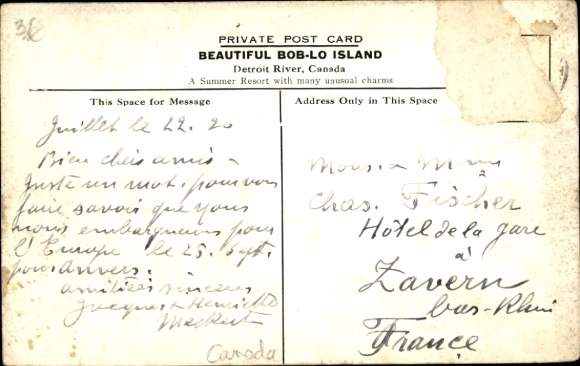 38
PRIVATE POST CARD
BEAUTIFUL BOB-LO ISLAND
Detroit River, Canada
A Summer Resort with many unusual charms
This Space for Message
Address Only in This Space
Juillet le 22. 20
Bien chers amis -
Juste un mot, pour vous
faire savoir que
nous embarquons pour
l'Europe le 25. Sept.
pour Anvers.
amitiées sinceres
Jacques & Henriette
Meckert
Canada
Mons. & Mme
Chas. Fischer
Hôtel de la gare
à
Zavern
bas-Rhin
France